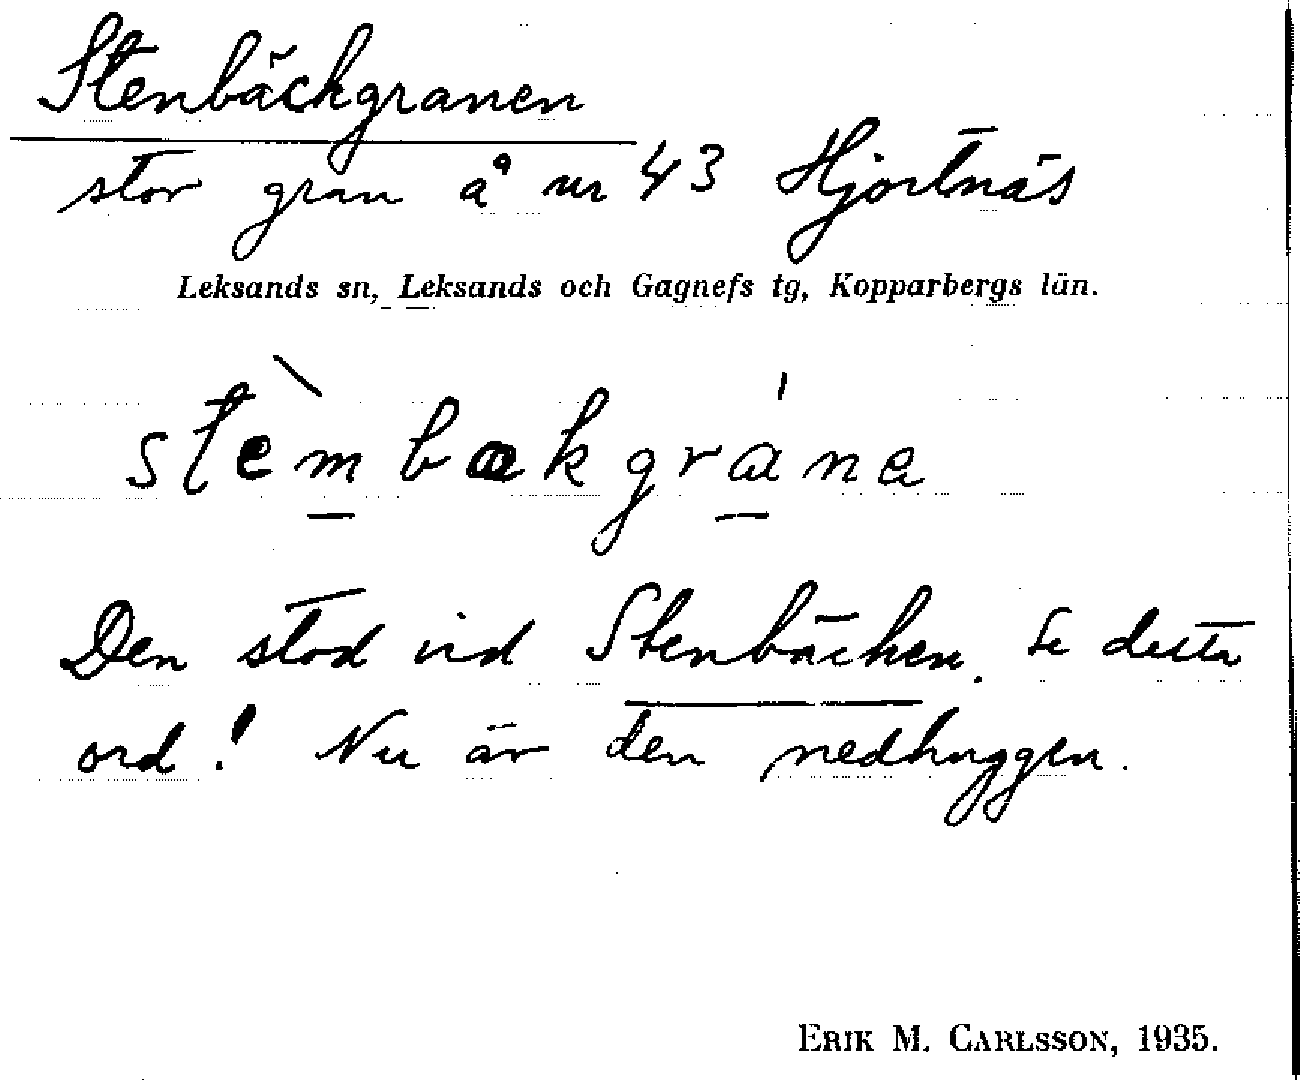 Stenbäckgranen
stor gran å nr 43 Hjortnäs
Leksands sn, Leksands och Gagnefs tg, Kopparbergs län.
stèmbækgrána
Den stod vid Stenbäcken. Se detta
ord! Nu är den nedhuggen.
ERIK M. CARLSSON, 1935.